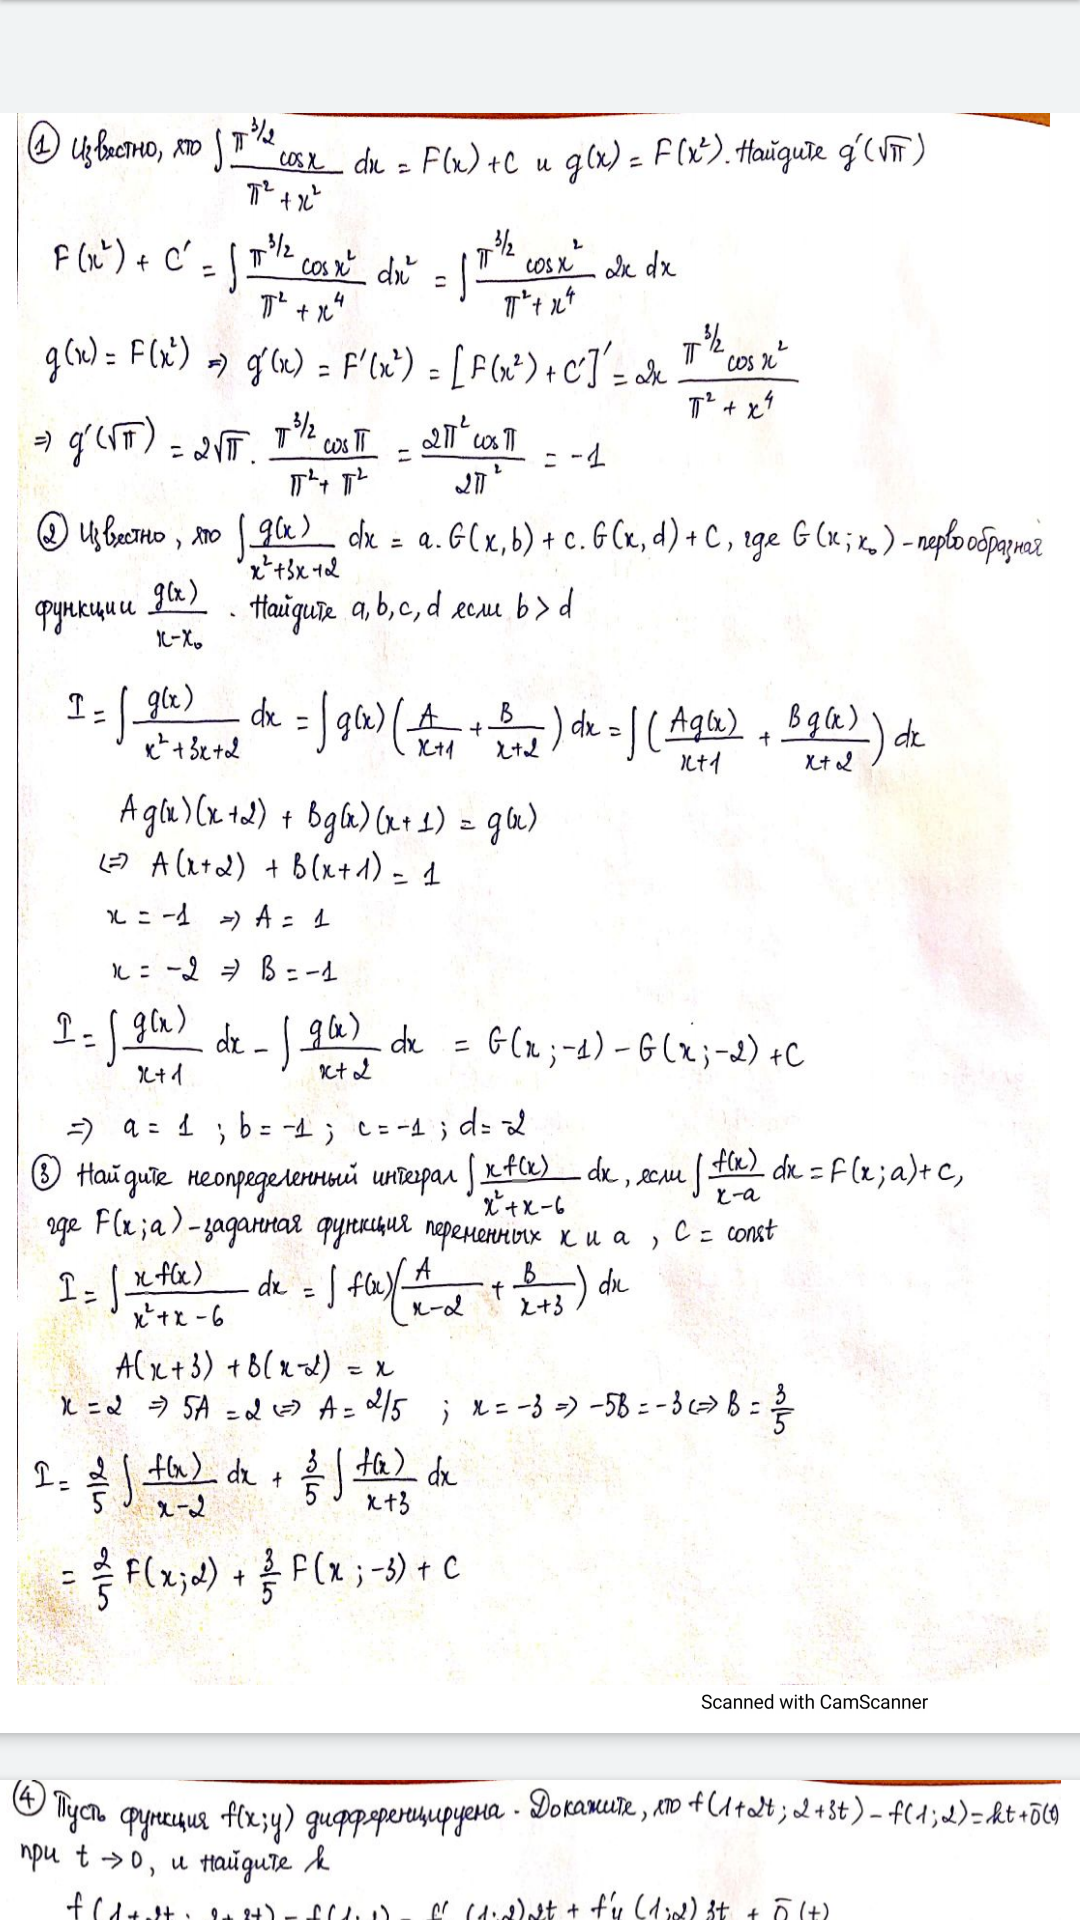 ① Известно, что ∫ π^(3/2) cosx / (π² + x²) dx = F(x) + C и g(x) = F(x²). Найдите g'(√π)
F(x²) + C' = ∫ π^(3/2) cosx² / (π² + x⁴) dx² = ∫ π^(3/2) cosx² / (π² + x⁴) 2x dx
g(x) = F(x²) => g'(x) = F'(x²) = [F(x²) + C']' = 2x π^(3/2) cosx² / (π² + x⁴)
=> g'(√π) = 2√π . π^(3/2) cosπ / (π² + π²) = 2π² cosπ / 2π² = -1
② Известно, что ∫ g(x) / (x²+3x+2) dx = a.G(x,b) + c.G(x,d) + C, где G(x;x₀) - первообразная
функции g(x) / (x-x₀) . Найдите a,b,c,d если b > d
I = ∫ g(x) / (x²+3x+2) dx = ∫ g(x) ( A / (x+1) + B / (x+2) ) dx = ∫ ( Ag(x) / (x+1) + Bg(x) / (x+2) ) dx
Ag(x)(x+2) + Bg(x)(x+1) = g(x)
<=> A(x+2) + B(x+1) = 1
x = -1 => A = 1
x = -2 => B = -1
I = ∫ g(x) / (x+1) dx - ∫ g(x) / (x+2) dx = G(x;-1) - G(x;-2) + C
=> a = 1 ; b = -1 ; c = -1 ; d = -2
③ Найдите неопределенный интеграл ∫ xf(x) / (x²+x-6) dx, если ∫ f(x) / (x-a) dx = F(x;a) + C,
где F(x;a) - заданная функция переменных x и a , C = const
I = ∫ xf(x) / (x²+x-6) dx = ∫ f(x) ( A / (x-2) + B / (x+3) ) dx
A(x+3) + B(x-2) = x
x = 2 => 5A = 2 <=> A = 2/5 ; x = -3 => -5B = -3 <=> B = 3/5
I = 2/5 ∫ f(x) / (x-2) dx + 3/5 ∫ f(x) / (x+3) dx
= 2/5 F(x;2) + 3/5 F(x;-3) + C
Scanned with CamScanner
④ Пусть функция f(x;y) дифференцируена. Докажите, что f(1+2t; 2+3t) - f(1;2) = kt + ō(t)
при t → 0, и найдите k
f(1+2t; 2+3t) - f(1;2) = f' (1;2)2t + f'y (1;2) 3t + ō(t)